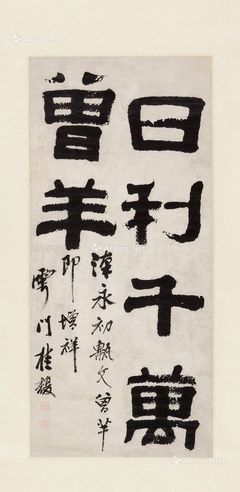 日利千萬
曾羊
漢永初甎文曾羊
即增祥
雩門桂馥